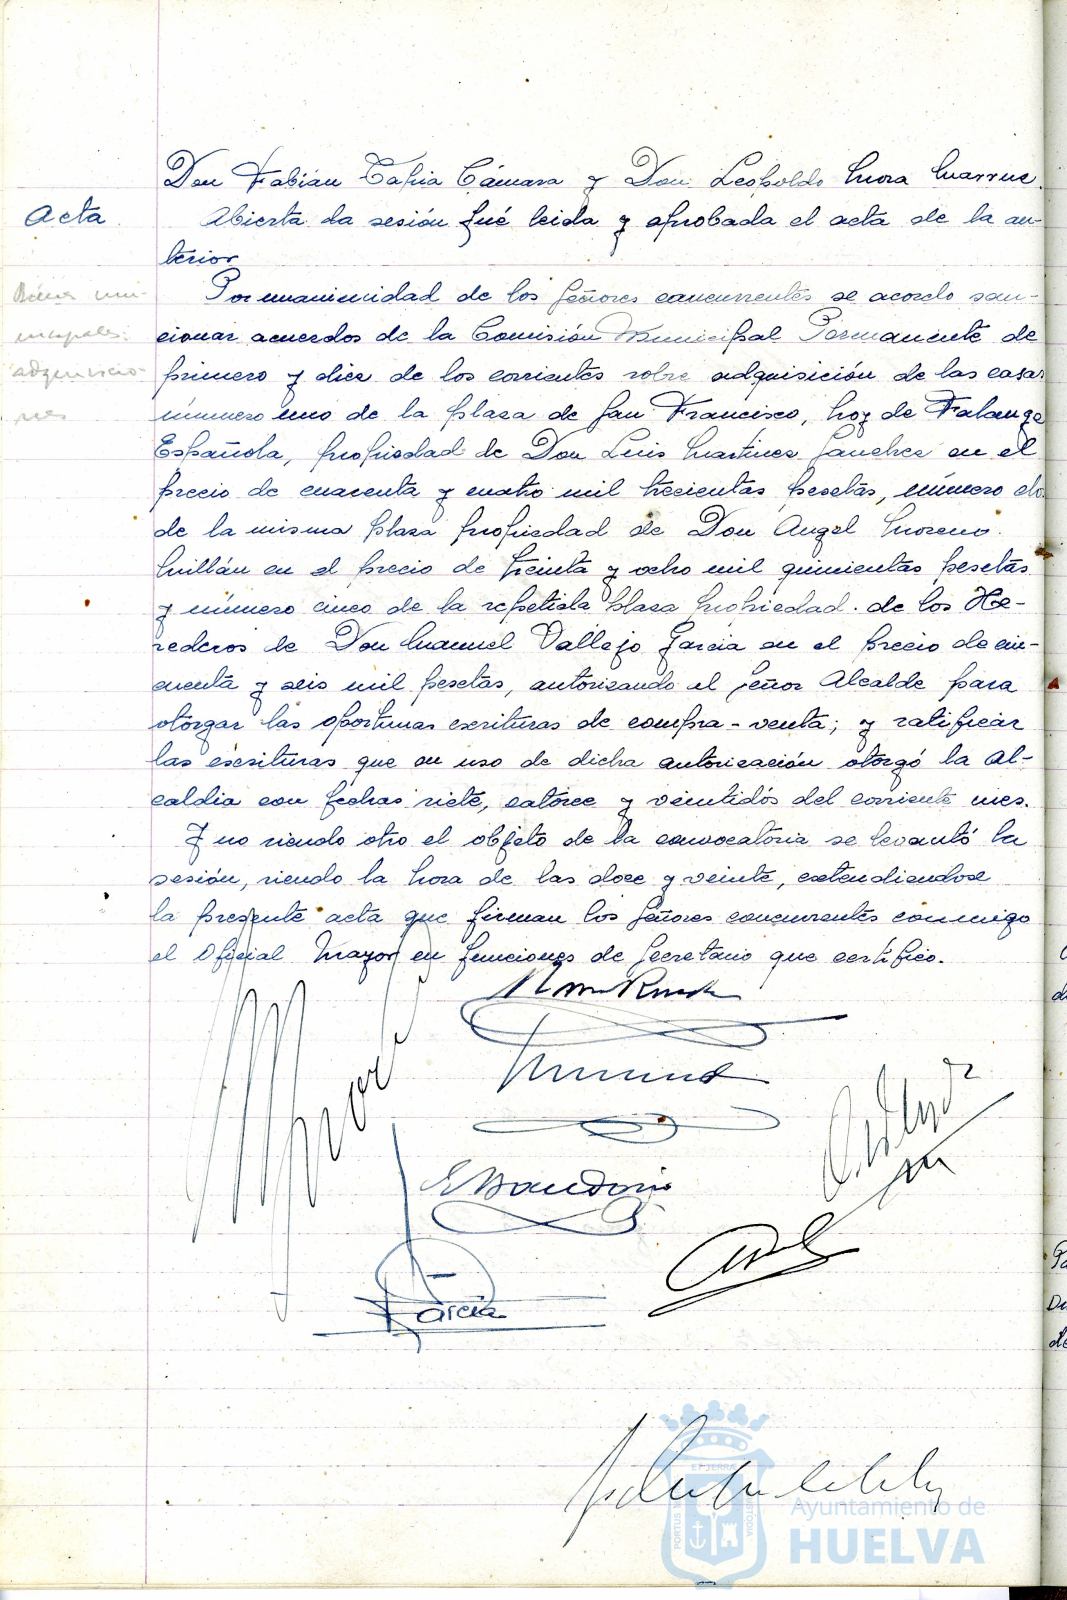 Don Fabián Tapia Cámara y Don Leopoldo Mora
Acta
Abierta la sesión fué leida y aprobada el acta de la an-
terior
Bienes mu-
nicipales:
adquisicio-
nes
Por unanimidad de los Señores concurrentes se acordo san-
cionar acuerdos de la Comisión Municipal Permanente de
primero y diez de los corrientes sobre adquisición de las casas
número uno de la plaza de San Francisco, hoy de Falange
Española, propiedad de Don Luis Martinez Sanchez en el
precio de cuarenta y cuatro mil trecientas pesetas, número dos
de la misma plaza propiedad de Don Angel Moreno
Millán en el precio de treinta y ocho mil quinientas pesetas
y número cinco de la repetida plaza propiedad de los He-
rederos de Don Manuel Vallejo Garcia en el precio de cin-
cuenta y seis mil pesetas, autorizando el Señor Alcalde para
otorgar las oportunas escrituras de compra-venta; y ratificar
las escrituras que en uso de dicha autorización otorgó la Al-
caldia con fechas siete, catorce y veintidós del corriente mes.
Y no siendo otro el objeto de la convocatoria se levantó la
sesión, siendo la hora de las doce y veinte, extendiendose
la presente acta que firman los Señores concurrentes conmigo
el Oficial Mayor en funciones de Secretario que certifico.
Garcia
ET TERRAE
PORTUS M
CUSTODIA
Ayuntamiento de
HUELVA